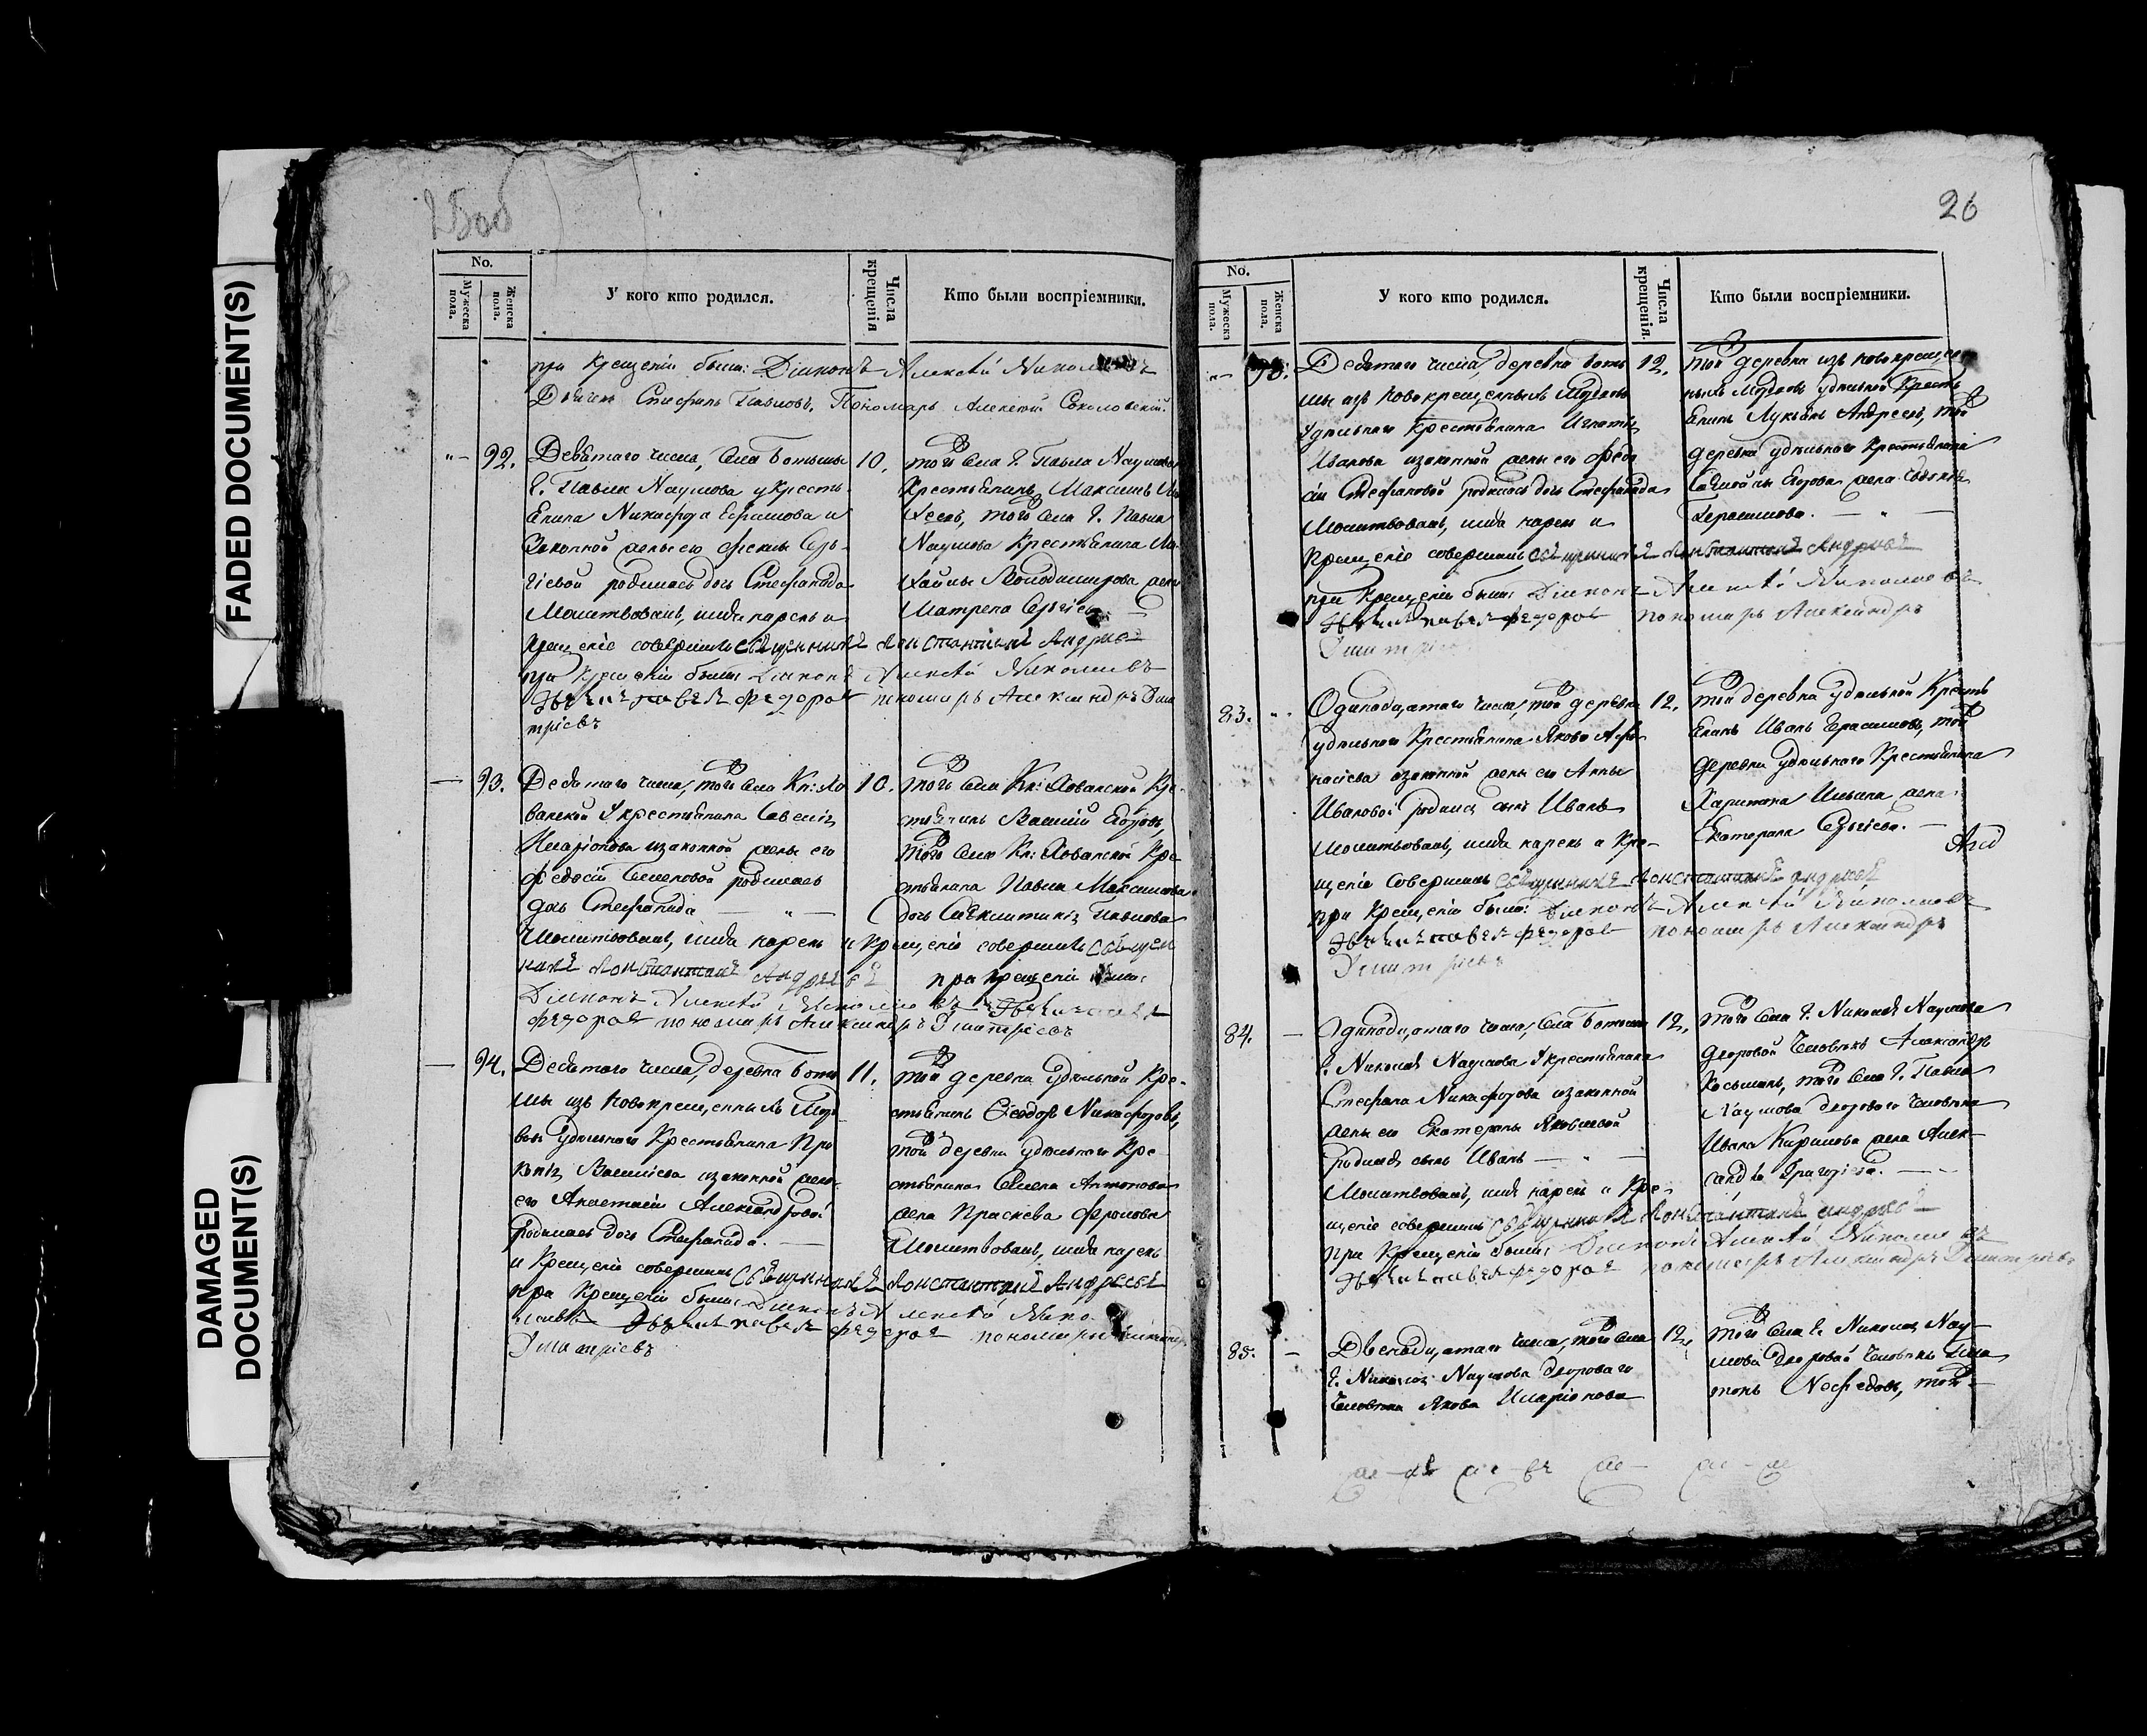 FADED DOCUMENT(S)
DAMAGED
DOCUMENT(S)
25 об
No.
Мужеска пола.
Женска пола.
У кого кто родился.
Числа крещенія
Кто были воспріемники.
при Крещеніи были: Діаконъ Алексѣй Николаевъ
Дьячекъ Стефанъ Павловъ, Пономарь Алексѣй Соколовскій.
92.
Девятаго числа, села Ботьмы
Г. Павла Наумова у кресть-
янина Никифора Ефимова и
Законной жены его Феклы Сер-
гіевой родилась дочь Стефанида
Молитвовалъ, имя нарекъ и
крещеніе совершилъ священникъ Константинъ Андреевъ
при крещеніи были Діаконъ Алексѣй Николаевъ
Дьячекъ Павелъ Федоровъ пономарь Александръ Дми
тріевъ
10.
того села Г. Павла Наумова
Крестьянинъ Максимъ
того села Г. Павла
Наумова крестьянина
Володимирова жена
Матрена Сергіева
93.
Девятаго числа, того села Кн: Хо
ванской у крестьянина Савелія
Иларіонова и законной жены его
Федосіи Семеновой родилась
дочь Стефанида
Молитвовалъ, имя нарекъ и крещеніе совершилъ священ
никъ Константинъ Андреевъ при крещеніи были
Діаконъ Алексѣй Николаевъ Дьячекъ Павелъ
Федоровъ пономарь Александръ Дмитріевъ
10.
того села Кн: Хованской Кре-
стьянинъ Василій Егоровъ,
того села Кн: Хованской Кре-
стьянина Павла Максимова
дочь Павлова
94.
Девятаго числа, деревни Боть
мы изъ новокрещенныхъ Морд-
вовъ удѣльнаго Крестьянина Про
копія Василіева и законной жены
его Анастасіи Александровой
родилась дочь Стефанида.
и Крещеніе совершилъ священникъ Константинъ Андреевъ
при Крещеніи были: Діаконъ Алексѣй Нико-
лаевъ Дьячекъ Павелъ Федоровъ пономарь Александръ
Дмитріевъ
11.
той деревни удѣльной Кре-
стьянинъ Ѳеодоръ Никифоровъ,
той деревни удѣльнаго Кре-
стьянина Семена Антонова
жена Праскева Фролова
Молитвовалъ, имя нарекъ
26
No.
Мужеска пола.
Женска пола.
У кого кто родился.
Числа крещенія.
Кто были воспріемники.
95.
Девятаго числа, деревни Боть
мы изъ новокрещенныхъ Мордвовъ
удѣльнаго крестьянина Игнатія
Иванова и законной жены его Федо
сіи Стефановой родилась дочь Стефанида
Молитвовалъ, имя нарекъ и
Крещеніе совершилъ священникъ Константинъ Андреевъ
при Крещеніи были: Діаконъ Алексѣй Николаевъ
Дьячекъ Павелъ Федоровъ пономарь Александръ
Дмитріевъ
12.
той деревни изъ новокрещен
ныхъ Мордовъ удѣльной Кресть
янинъ Лукьянъ Андреевъ, той
деревни удѣльнаго Крестьянина
Егорова жена
Герасимова.
83.
Одинадцатаго числа, той деревни
удѣльнаго Крестьянина Якова Афо
насіева и законной жены его Анны
Ивановой родился сынъ Иванъ
Молитвовалъ, имя нарекъ и Кре-
щеніе совершилъ священникъ Константинъ Андреевъ
при Крещеніи были: Діаконъ Алексѣй Николаевъ
Дьячекъ Павелъ Федоровъ пономарь Александръ
Дмитріевъ
12.
той деревни удѣльной Кресть
янинъ Иванъ Герасимовъ, той
деревни удѣльнаго Крестьянина
Харитона Ильина жена
Екатерина Сергіева.
84.
Одинадцатаго числа, села Ботьмы
Г. Николая Наумова у крестьянина
Стефана Никифорова и законной
жены его Екатерины Яковлевой
родился сынъ Иванъ
Молитвовалъ, имя нарекъ и Кре-
щеніе совершилъ священникъ Константинъ Андреевъ
при Крещеніи были: Діаконъ Алексѣй Николаевъ
Дьячекъ Павелъ Федоровъ пономарь Александръ Дмитріевъ
12.
того села Г. Николая Наумова
дворовой человѣкъ Александръ
Косьминъ, того села Г. Павла
Наумова двороваго человѣка
Ивана Кирилова жена Алек-
сандра Григорьева.
85.
Двенадцатаго числа, того села
Г. Николая Наумова двороваго
человѣка Якова Иларіонова
12.
того села Г. Николая Нау-
мова дворовой человѣкъ
Нефедовъ, того